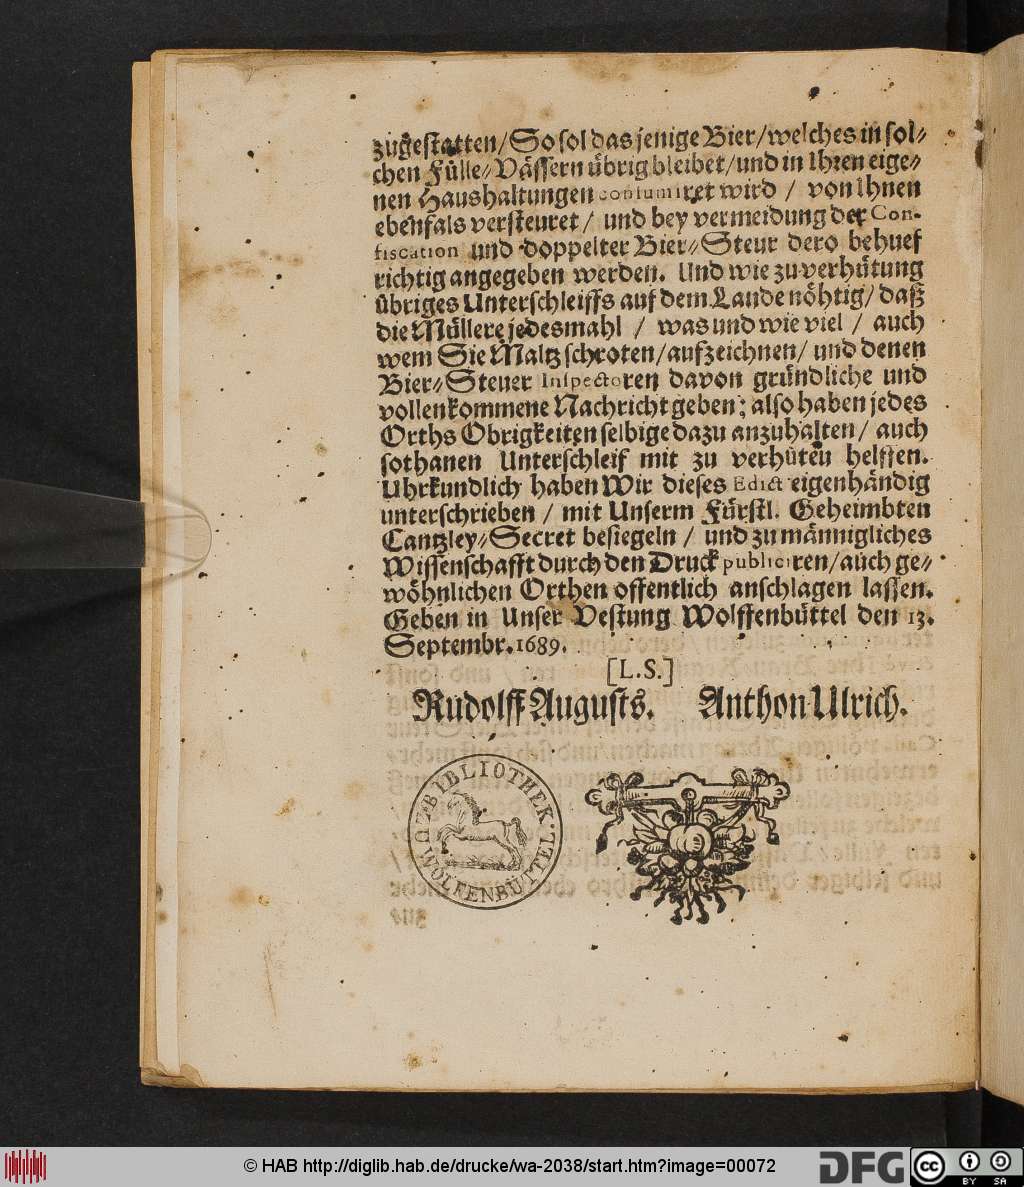 zugestatten/ So sol das jenige Bier/ welches in sol⸗
chen Fülle⸗Vässern übrig bleibet/ und in Ihren eige⸗
nen Haushaltungen consumiret wird / von Ihnen
ebenfals versteuret/ und bey vermeidung der Con-
fiscation und doppelter Bier⸗Steur dero behuef
richtig angegeben werden. Und wie zu verhütung
übriges Unterschleiffs auf dem Lande nöhtig/ daß
die Müllere jedesmahl / was und wie viel / auch
wem Sie Maltz schroten/ aufzeichnen/ und denen
Bier⸗Steuer Inspectoren davon gründliche und
vollenkommene Nachricht geben; also haben jedes
Orths Obrigkeiten selbige dazu anzuhalten/ auch
sothanen Unterschleif mit zu verhüten helffen.
Uhrkundlich haben Wir dieses Edict eigenhändig
unterschrieben / mit Unserm Fürstl. Geheimbten
Cantzley⸗Secret besiegeln / und zu männigliches
Wissenschafft durch den Druck publiciren/ auch ge⸗
wöhnlichen Orthen offentlich anschlagen lassen.
Geben in Unser Vestung Wolffenbüttel den 13.
Septembr. 1689.
[L.S.]
Rudolff Augusts. Anthon Ulrich.
BIBLIOTHEK·
ZU WOLFENBÜTTEL·
© HAB http://diglib.hab.de/drucke/wa-2038/start.htm?image=00072
DFG
cc BY SA